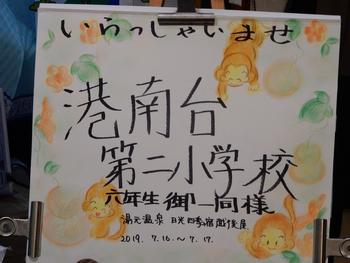 いらっしゃいませ
港南台
第二小学校
六年生 御一同様
湯元温泉 日光四季宿 越後屋
2019. 7.16.〜7.17.